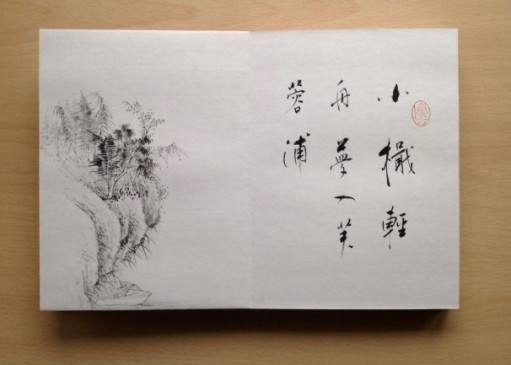 小檝輕
舟夢入芙
蓉浦